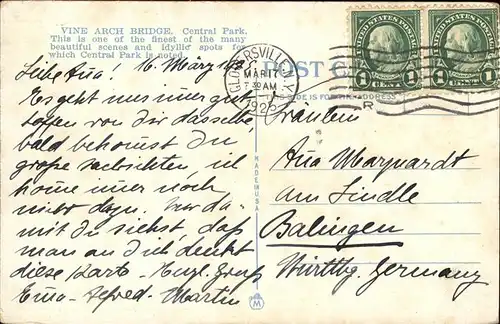 VINE ARCH BRIDGE, Central Park.
This is one of the finest of the many
beautiful scenes and idyllic spots for
which Central Park is noted.
UNITED STATES POSTAGE
1 CENT 1
UNITED STATES POSTAGE
1 CENT 1
GLOVERSVILLE N.Y.
MAR 17
7 30 AM
1925
POST CARD
THIS SIDE IS FOR THE ADDRESS
MADE IN USA
M
Liebe Ana! 16. März
Es geht uns immer gut
hoffen von dir dasselbe
bald bekomst du
große Nachrichten, ich
kome imer noch
nicht dazu. Nur da-
mit du siehst, daß
man an dich denkt
diese Karte. Herzl. Gruß
Ema-Alfred. Martin
Fräulein
Ana Marquardt
am Lindle
Balingen
Württbg. Germany